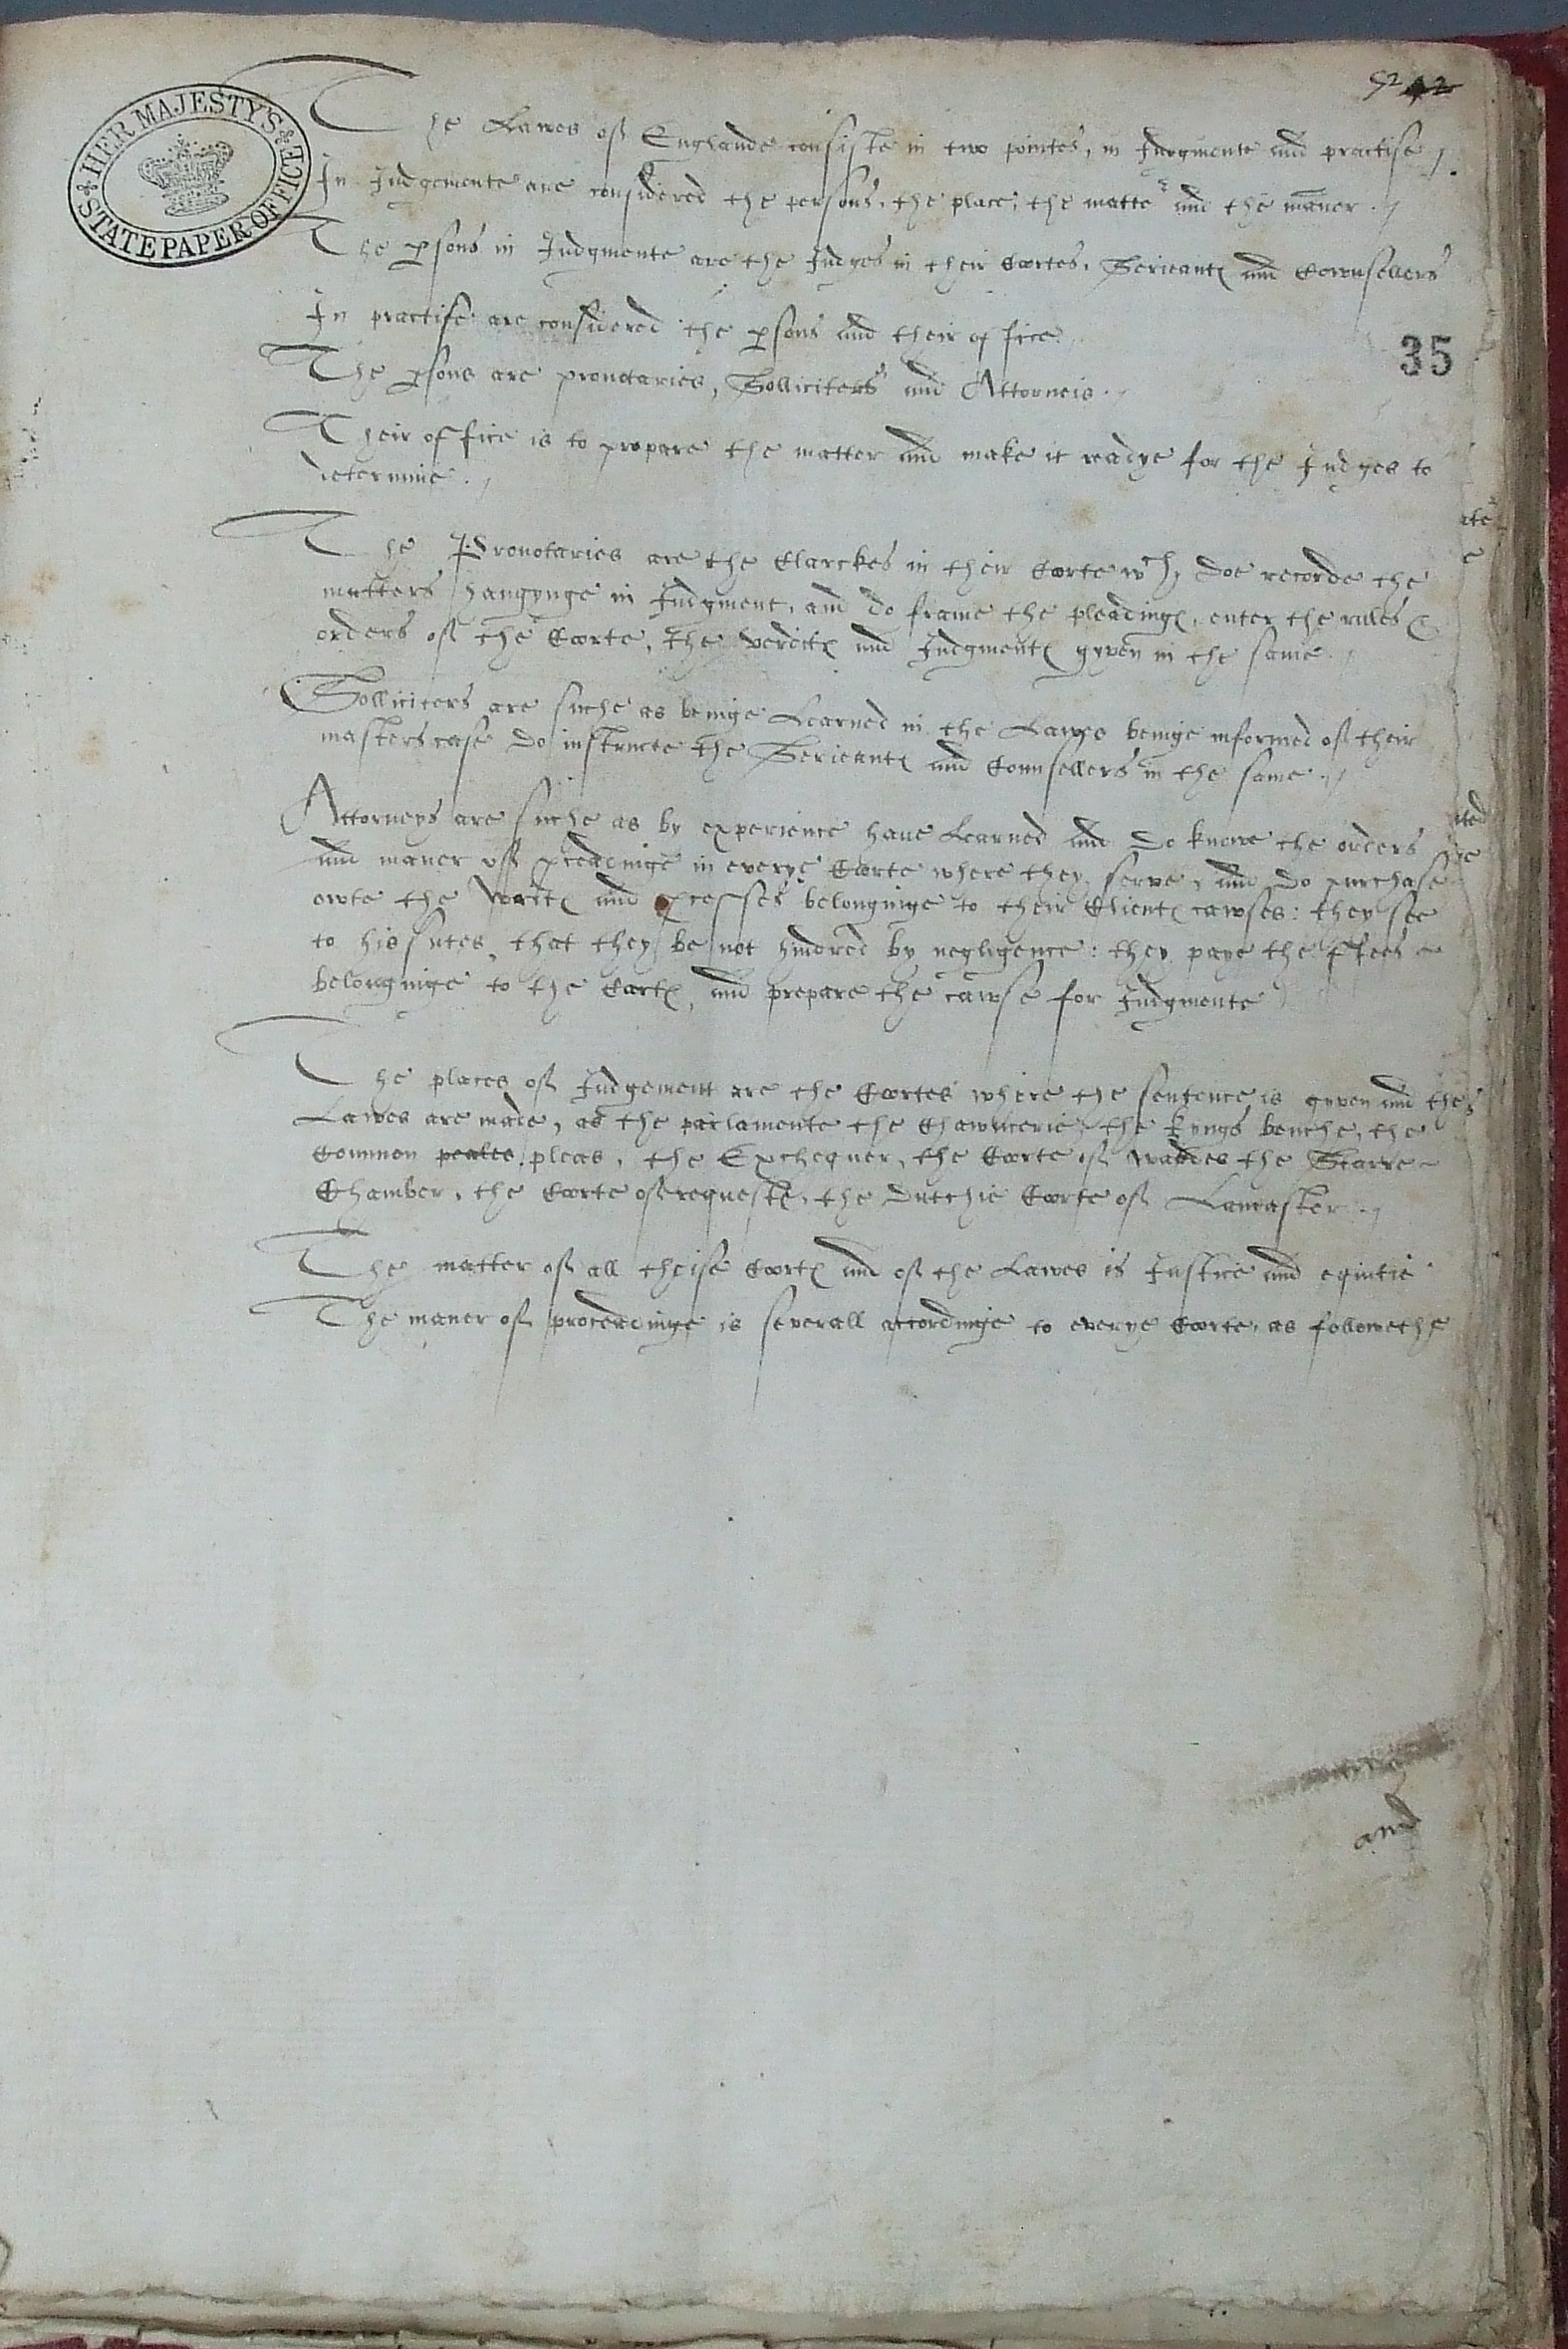 52 42
HER MAJESTY'S
STATE PAPER OFFICE
The Lawes off Englande consiste in two pointes, in Judgmente and practise
In Judgemente are considered the persons, the place, the matter and the maner
The psons in Judgmente are the Judges in their Cortes, Serieantes and Cownsellers
In practise are considered the psons and their office
35
The psons are pronotaries, Solliciters and Attorneis
Their office is to prepare the matter and make it readye for the Judges to
determine
The Pronotaries are the Clarckes in their Corte wch doe recorde the
matters hangynge in Judgment, and do frame the pleadinges, enter the rules &
orders off the Corte, the verdites and Judgmentes gyven in the same
Solliciters are suche as beinge Learned in the Lawes beinge informed off their
masters case do instructe the Serieantes and Counsellers in the same
Attorneys are suche as by experience haue Learned and do knowe the orders
and maner off pceadinge in everye Corte where they serve, and do purchase
owte the writes and pcesses belonginge to their Clientes cawses: they see
to his sutes, that they be not hindred by negligence: they paye the ffees
belonginge to the Cortes, and prepare the cawse for Judgmente
The places off Judgement are the Cortes where the sentence is gyven and the
Lawes are made, as the parlamente the Chawncerie, the kyngs benche, the
Common peales pleas, the Exchequer, the Corte off wardes the Starre
Chamber, the Corte off requestes, the dutchie Corte off Lancaster
The matter off all theise Cortes and off the Lawes is Justice and equitie
The maner off proceadinge is severall accordinge to everye Corte, as followethe
and